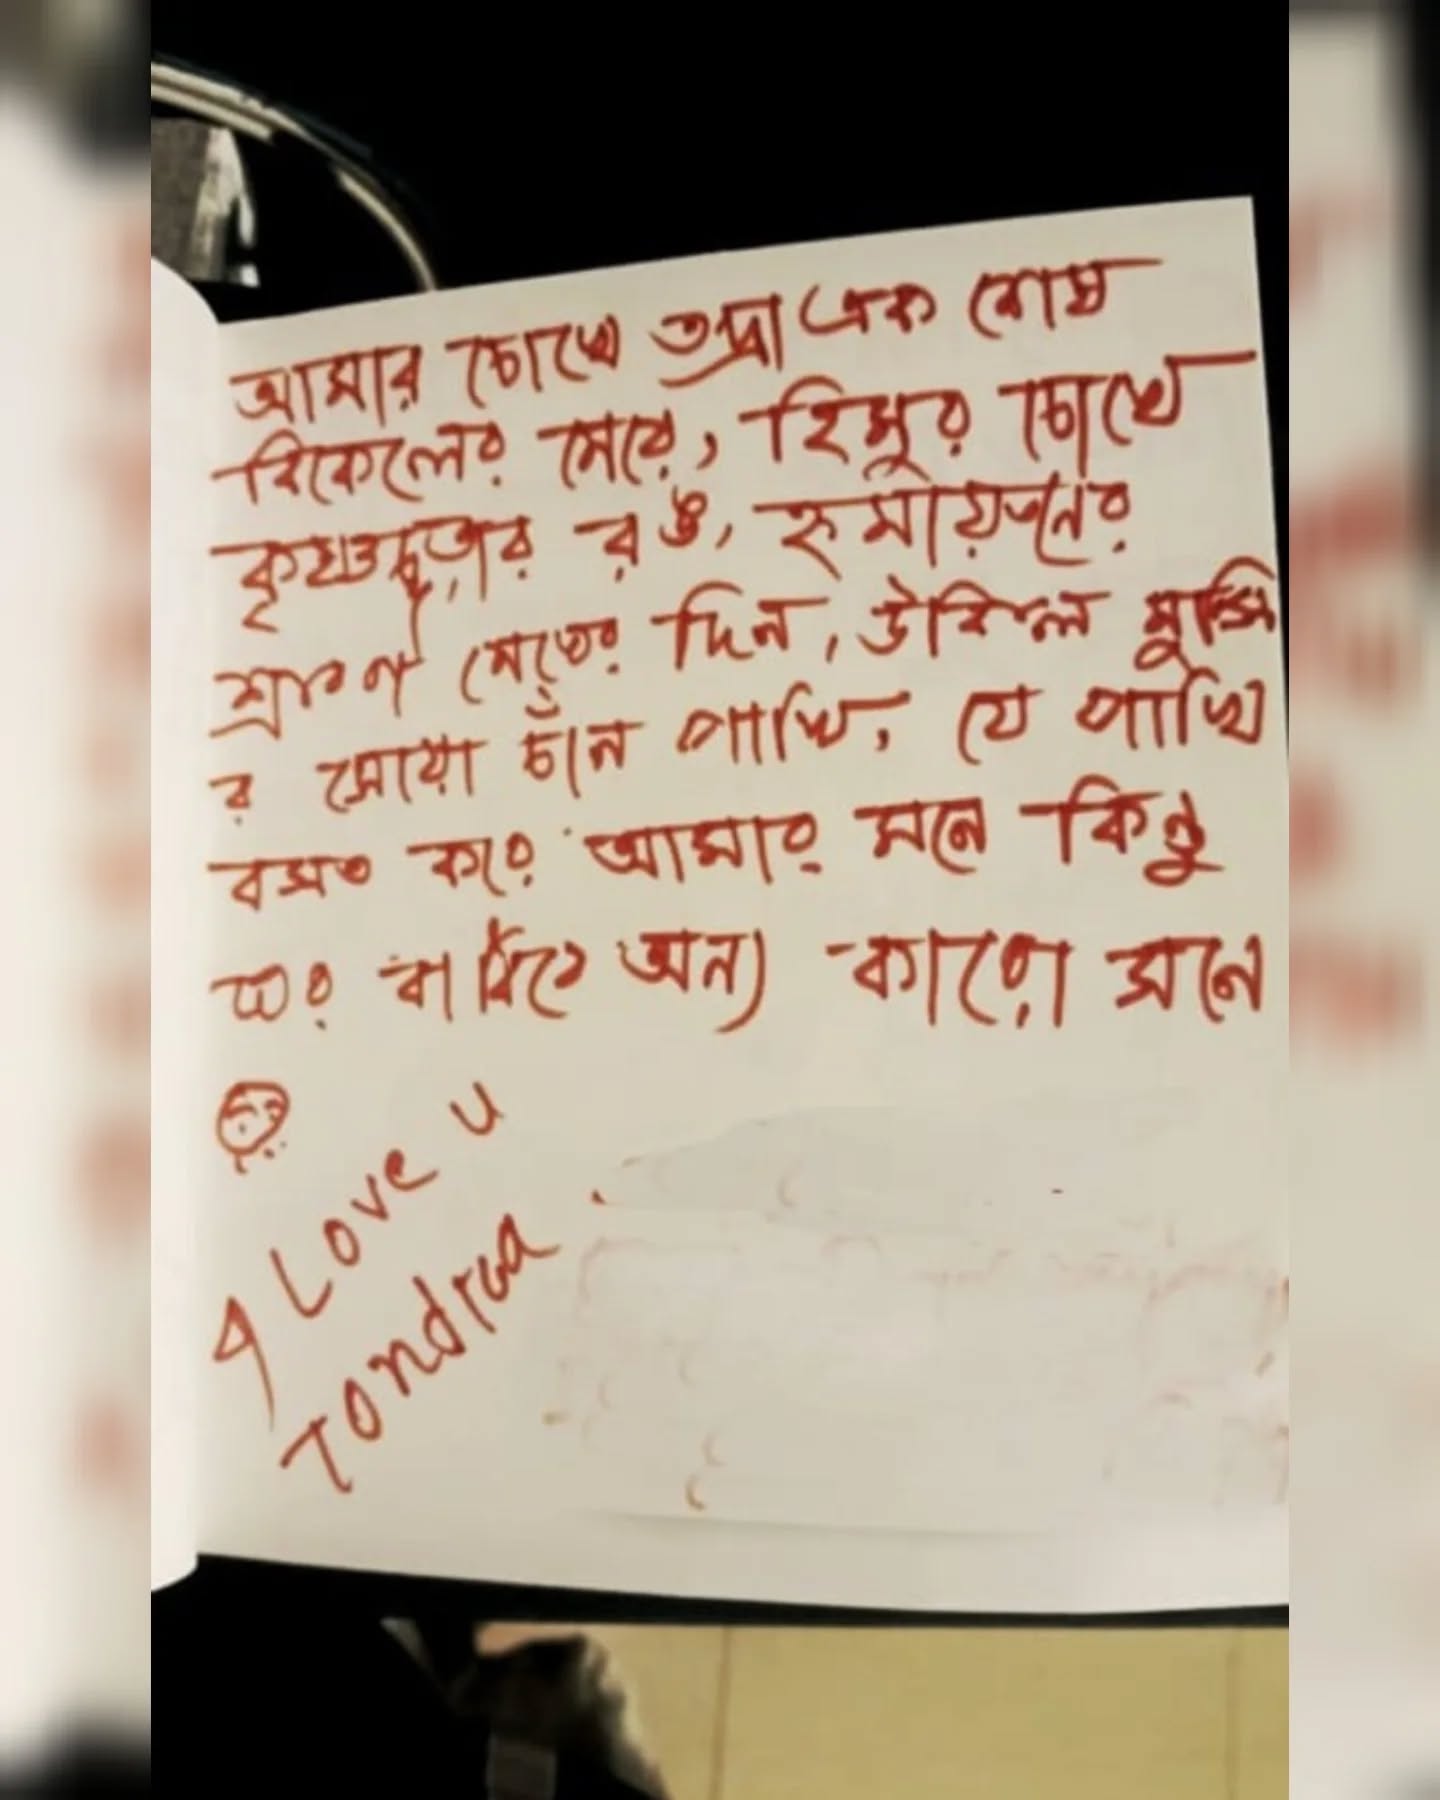 আমার চোখে তন্দ্রা এক শেষ
বিকেলের মেয়ে, হিমুর চোখে
কৃষ্ণচূড়ার রঙ, হুমায়ূনের
শ্রাবণ মেঘের দিন, উকিল মুন্সি
র সোয়া চাঁন পাখি, যে পাখি
বসত করে আমার মনে কিন্তু
ঘর বাঁধিবে অন্য কারো মনে
I Love u
Tondraa